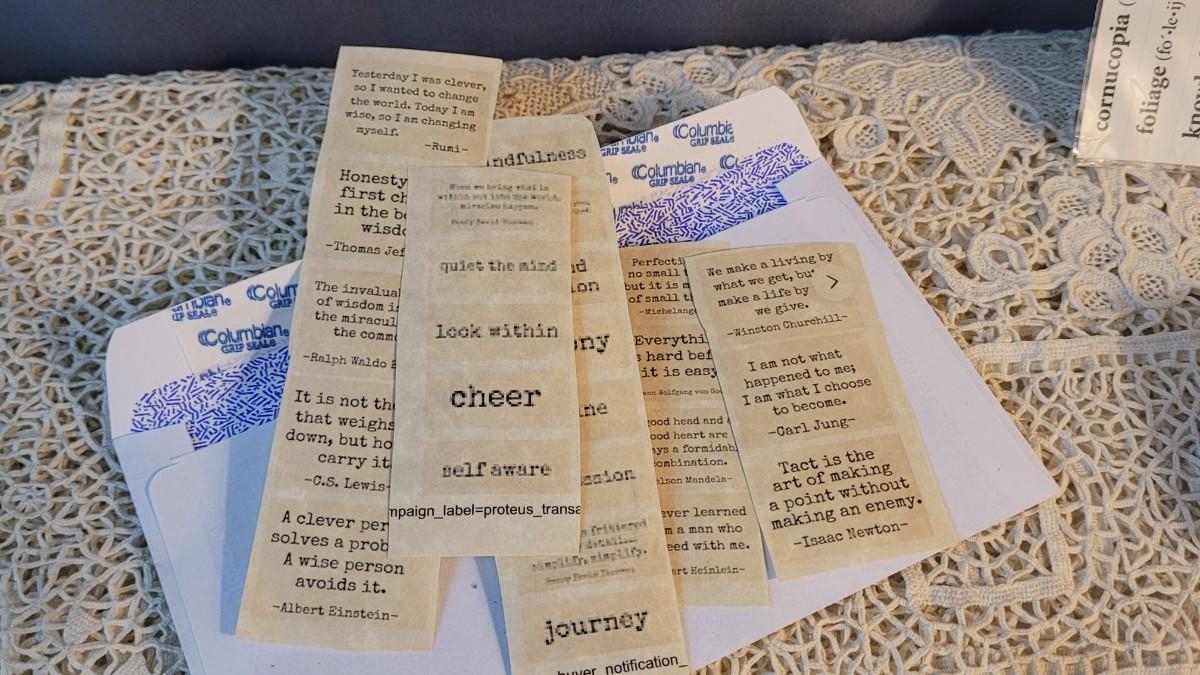 Yesterday I was clever,
so I wanted to change
the world. Today I am
wise, so I am changing
myself.
-Rumi-
Honesty
first ch
in the be
wisdo
-Thomas Jef
The invalua
of wisdom is
the miracul
the comm
-Ralph Waldo E
It is not th
that weighs
down, but ho
carry it
-C.S. Lewis-
A clever per
solves a prob
A wise person
avoids it.
-Albert Einstein-
When we bring what is
within out into the world,
miracles happen.
Henry David Thoreau
quiet the mind
look within
cheer
self aware
mpaign_label=proteus_transa
ndfulness
nd
on
ony
ne
ssion
frittered
detail
simplify, simplify.
Henry David Thoreau
journey
buyer_notification_
Perfecti
no small t
but it is m
of small t
-Michelang
Everythi
s hard bef
it is easy
ann Wolfgang von Go
good head and a
good heart are
ays a formidab
combination.
elson Mandela-
ever learned
m a man who
eed with me.
ert Heinlein-
We make a living by
what we get, bu
make a life by
we give.
-Winston Churchill-
I am not what
happened to me;
I am what I choose
to become.
-Carl Jung-
Tact is the
art of making
a point without
making an enemy.
-Isaac Newton-
Columbian
GRIP SEAL
Columbian
GRIP SEAL
Columbian
GRIP SEAL
cornucopia (
foliage (fo´·le·ij